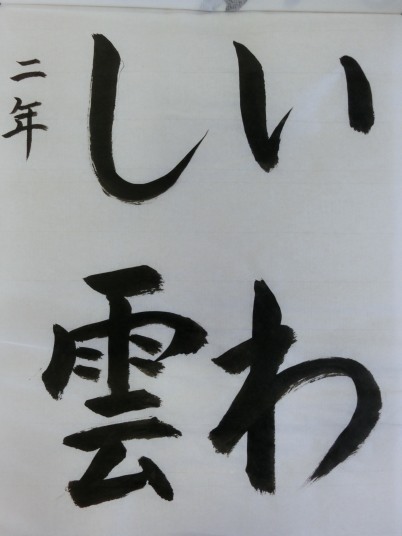 いわ
し雲
二年